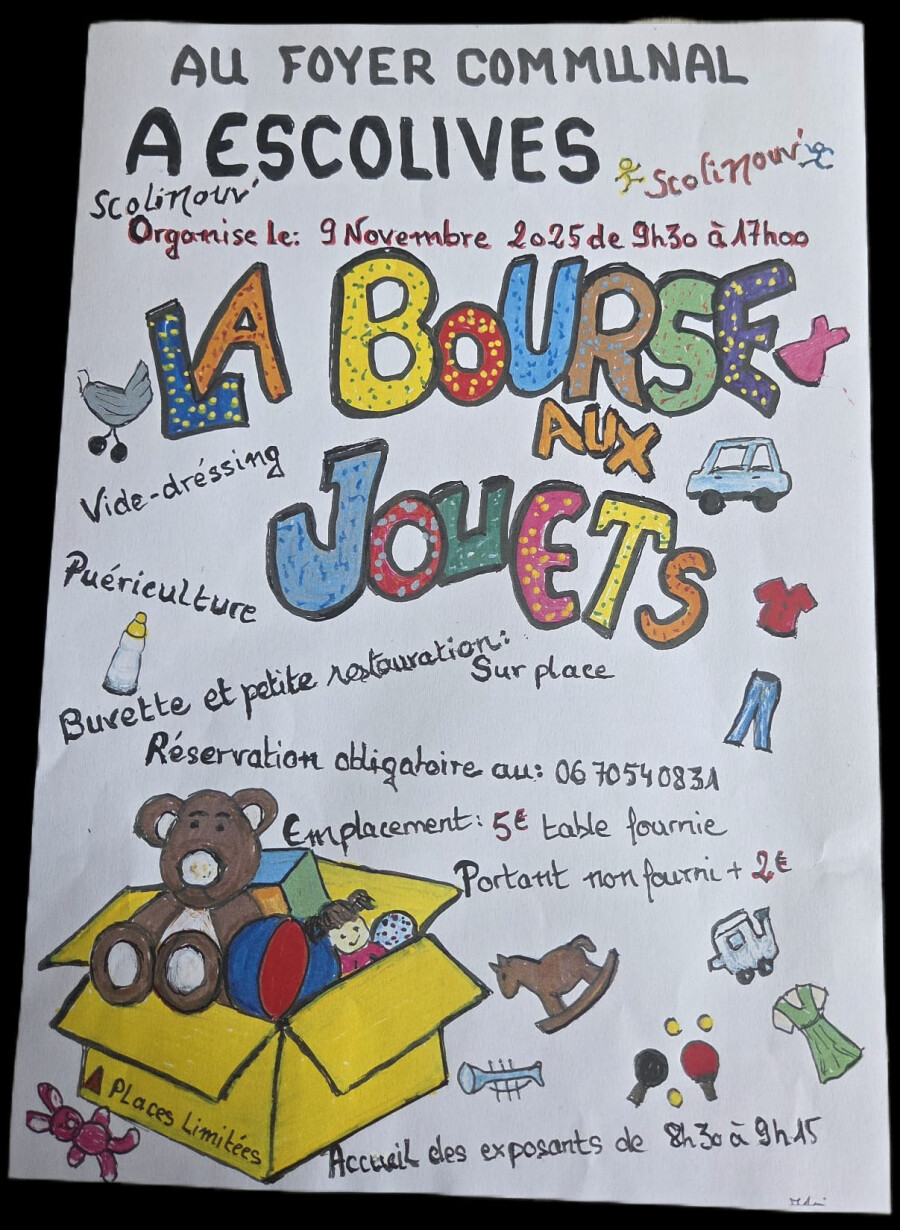 AU FOYER COMMUNAL
A ESCOLIVES
Scolinouv'
Scolinouv'
Organise le: 9 Novembre 2025 de 9h30 à 17h00
LA BOURSE
AUX
JOUETS
Vide-dréssing
Puériculture
Buvette et petite restauration:
Sur place
Réservation obligatoire au: 0670540831
Emplacement: 5€ table fournie
Portant non fourni + 2€
Places Limitées
Accueil des exposants de 8h30 à 9h15